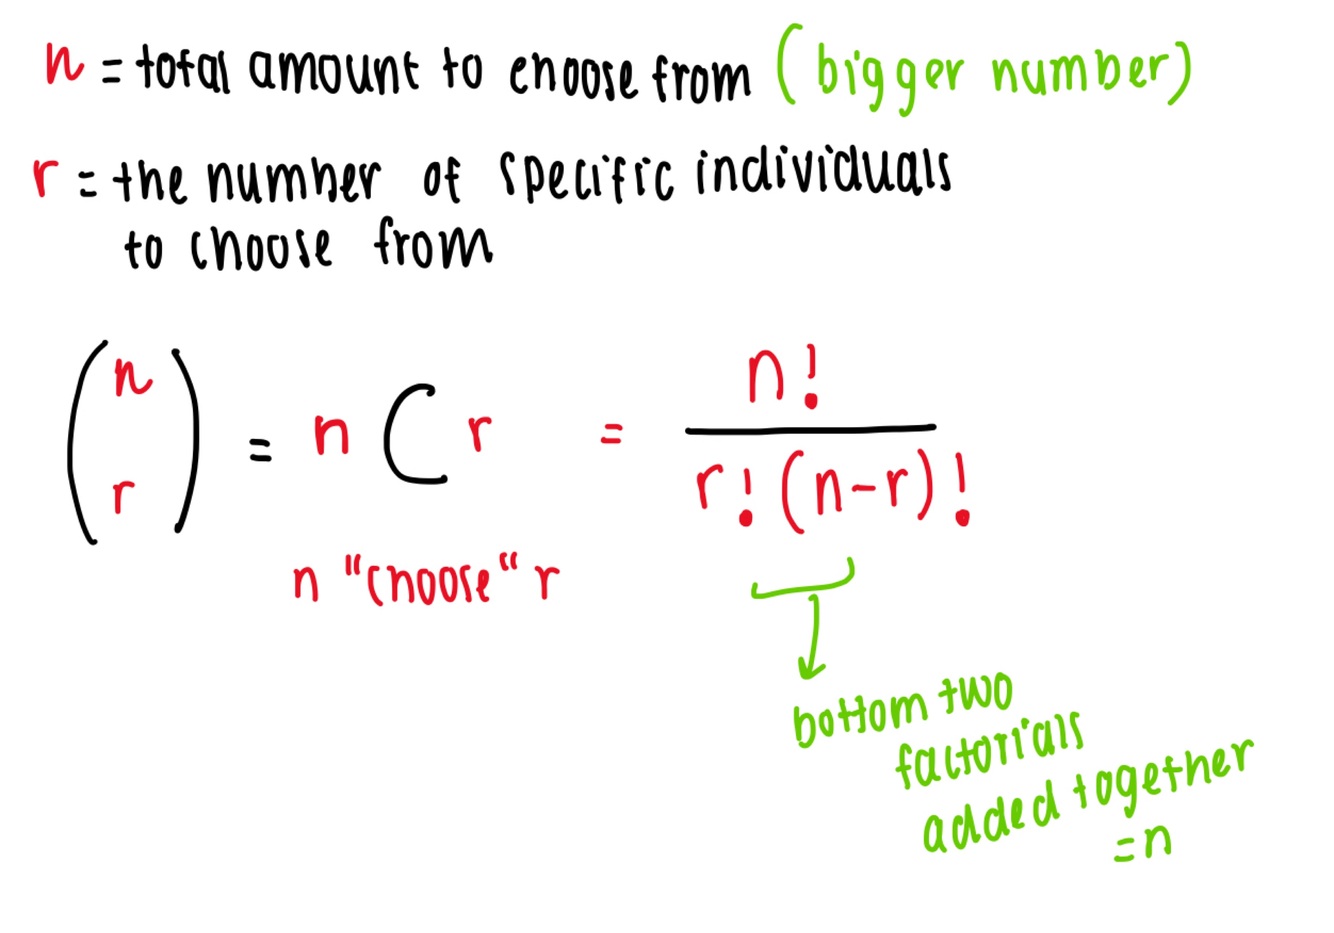 n = total amount to choose from (bigger number)
r = the number of specific individuals
to choose from
(n r) = n C r = n! / r! (n-r)!
n "choose" r
bottom two
factorials
added together
= n